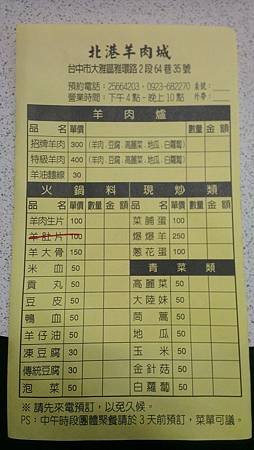 北港羊肉城
台中市大雅區雅環路2段64巷35號
預約電話:25664203、0923-682270 桌號:
營業時間:下午4點-晚上10點 外帶:
羊肉爐
品名 單價 數量 金額
招牌羊肉 300 (羊肉.豆腐.高麗菜.地瓜.白蘿蔔)
特級羊肉 400 (羊肉.豆腐.高麗菜.地瓜.白蘿蔔)
羊油麵線 30
火鍋料 現炒類
品名 單價 數量 金額 品名 單價 數量 金額
羊肉生片 100 菜脯蛋 100
羊肚片 100 爆爆羊 250
羊大骨 150 蔥花蛋 100
米血 50 青菜類
貢丸 50 高麗菜 50
豆皮 50 大陸妹 50
鴨血 50 茼蒿 50
羊仔油 50 地瓜 50
凍豆腐 30 玉米 50
傳統豆腐 30 金針菇 50
泡菜 50 白蘿蔔 50
※請先來電預訂,以免久候。
PS:中午時段團體聚餐請於3天前預訂,菜單可議。